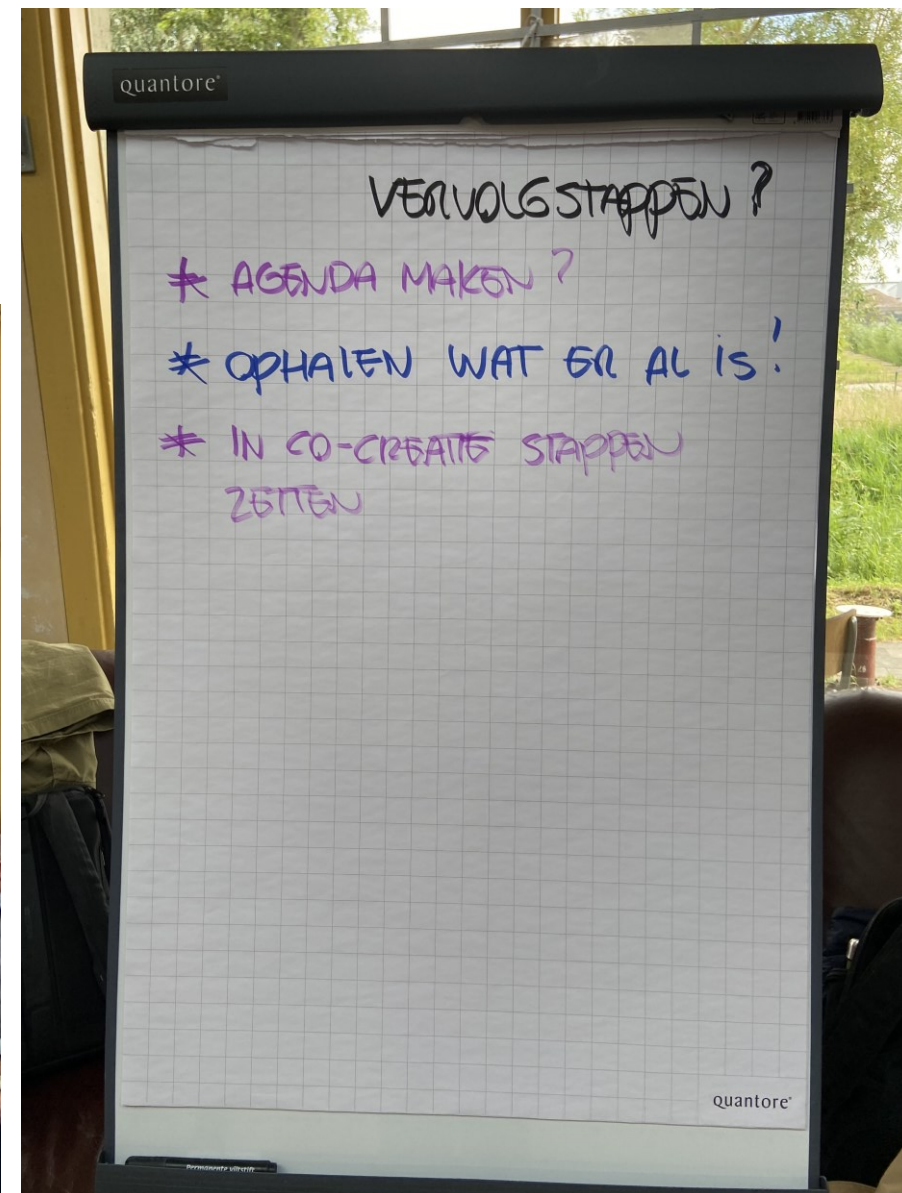 quantore
VERVOLGSTAPPEN?
* AGENDA MAKEN?
* OPHALEN WAT ER AL IS!
* IN CO-CREATIE STAPPEN
ZETTEN
quantore
Permanente viltstift